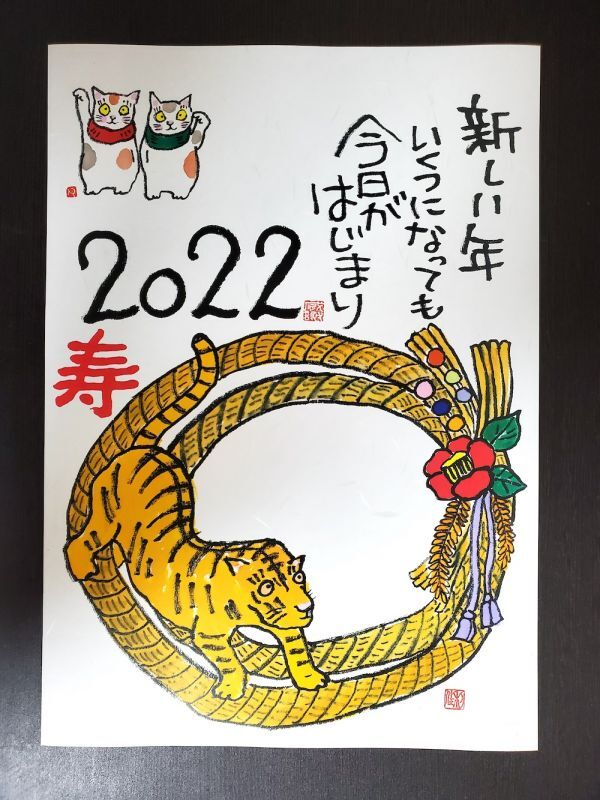 新しい年
いくつになっても
今日が
はじまり
2022
寿